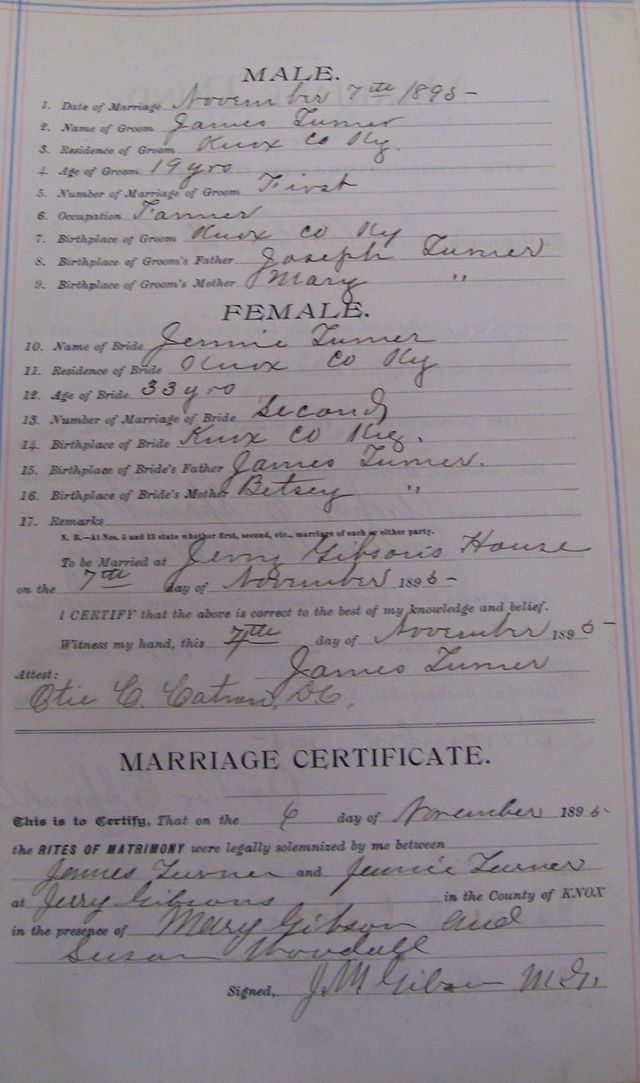 MALE.
1. Date of Marriage November 7th 1895-
2. Name of Groom James Turner
3. Residence of Groom Knox Co Ky.
4. Age of Groom 19 yrs
5. Number of Marriage of Groom First
6. Occupation Farmer
7. Birthplace of Groom Knox Co Ky
8. Birthplace of Groom's Father Joseph Turner
9. Birthplace of Groom's Mother Mary "
FEMALE.
10. Name of Bride Jennie Turner
11. Residence of Bride Knox Co Ky
12. Age of Bride 33 yrs
13. Number of Marriage of Bride Second
14. Birthplace of Bride Knox Co Ky.
15. Birthplace of Bride's Father James Turner.
16. Birthplace of Bride's Mother Betsey "
17. Remarks
N. B.—At Nos. 5 and 13 state whether first, second, etc., marriage of each or either party.
To be Married at Jerry Gibson's House
on the 7th day of November 1895-
I CERTIFY that the above is correct to the best of my knowledge and belief.
Witness my hand, this 7th day of November 1895-
James Turner
Attest:
Otie C. Catron, D.C.
MARRIAGE CERTIFICATE.
This is to Certify, That on the 6 day of November 1895
the RITES OF MATRIMONY were legally solemnized by me between
James Turner and Jennie Turner
at Jerry Gibsons in the County of KNOX
in the presence of Mary Gibson and
Susan Woodall
Signed, J. M. Gibson M.G.